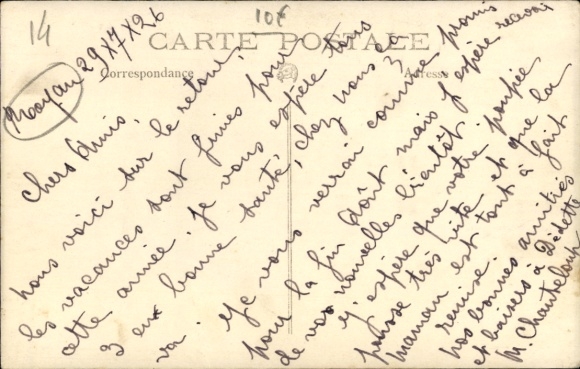 14
10€
CARTE POSTALE
Correspondance
Adresse
Noyon 29X7X26
Chers Amis,
nous voici sur le retour,
les vacances sont finies pour
cette année. Je vous espère tous
3 en bonne santé, chez nous ça
va. Je vous verrai comme promis
pour la fin Août mais j'espère recevoir
de vos nouvelles bientôt.
J'espère que votre poupée
pousse très vite et que la
maman est tout à fait
remise.
nos bonnes amitiés
et baisers à Dédette
M. Chanteloup